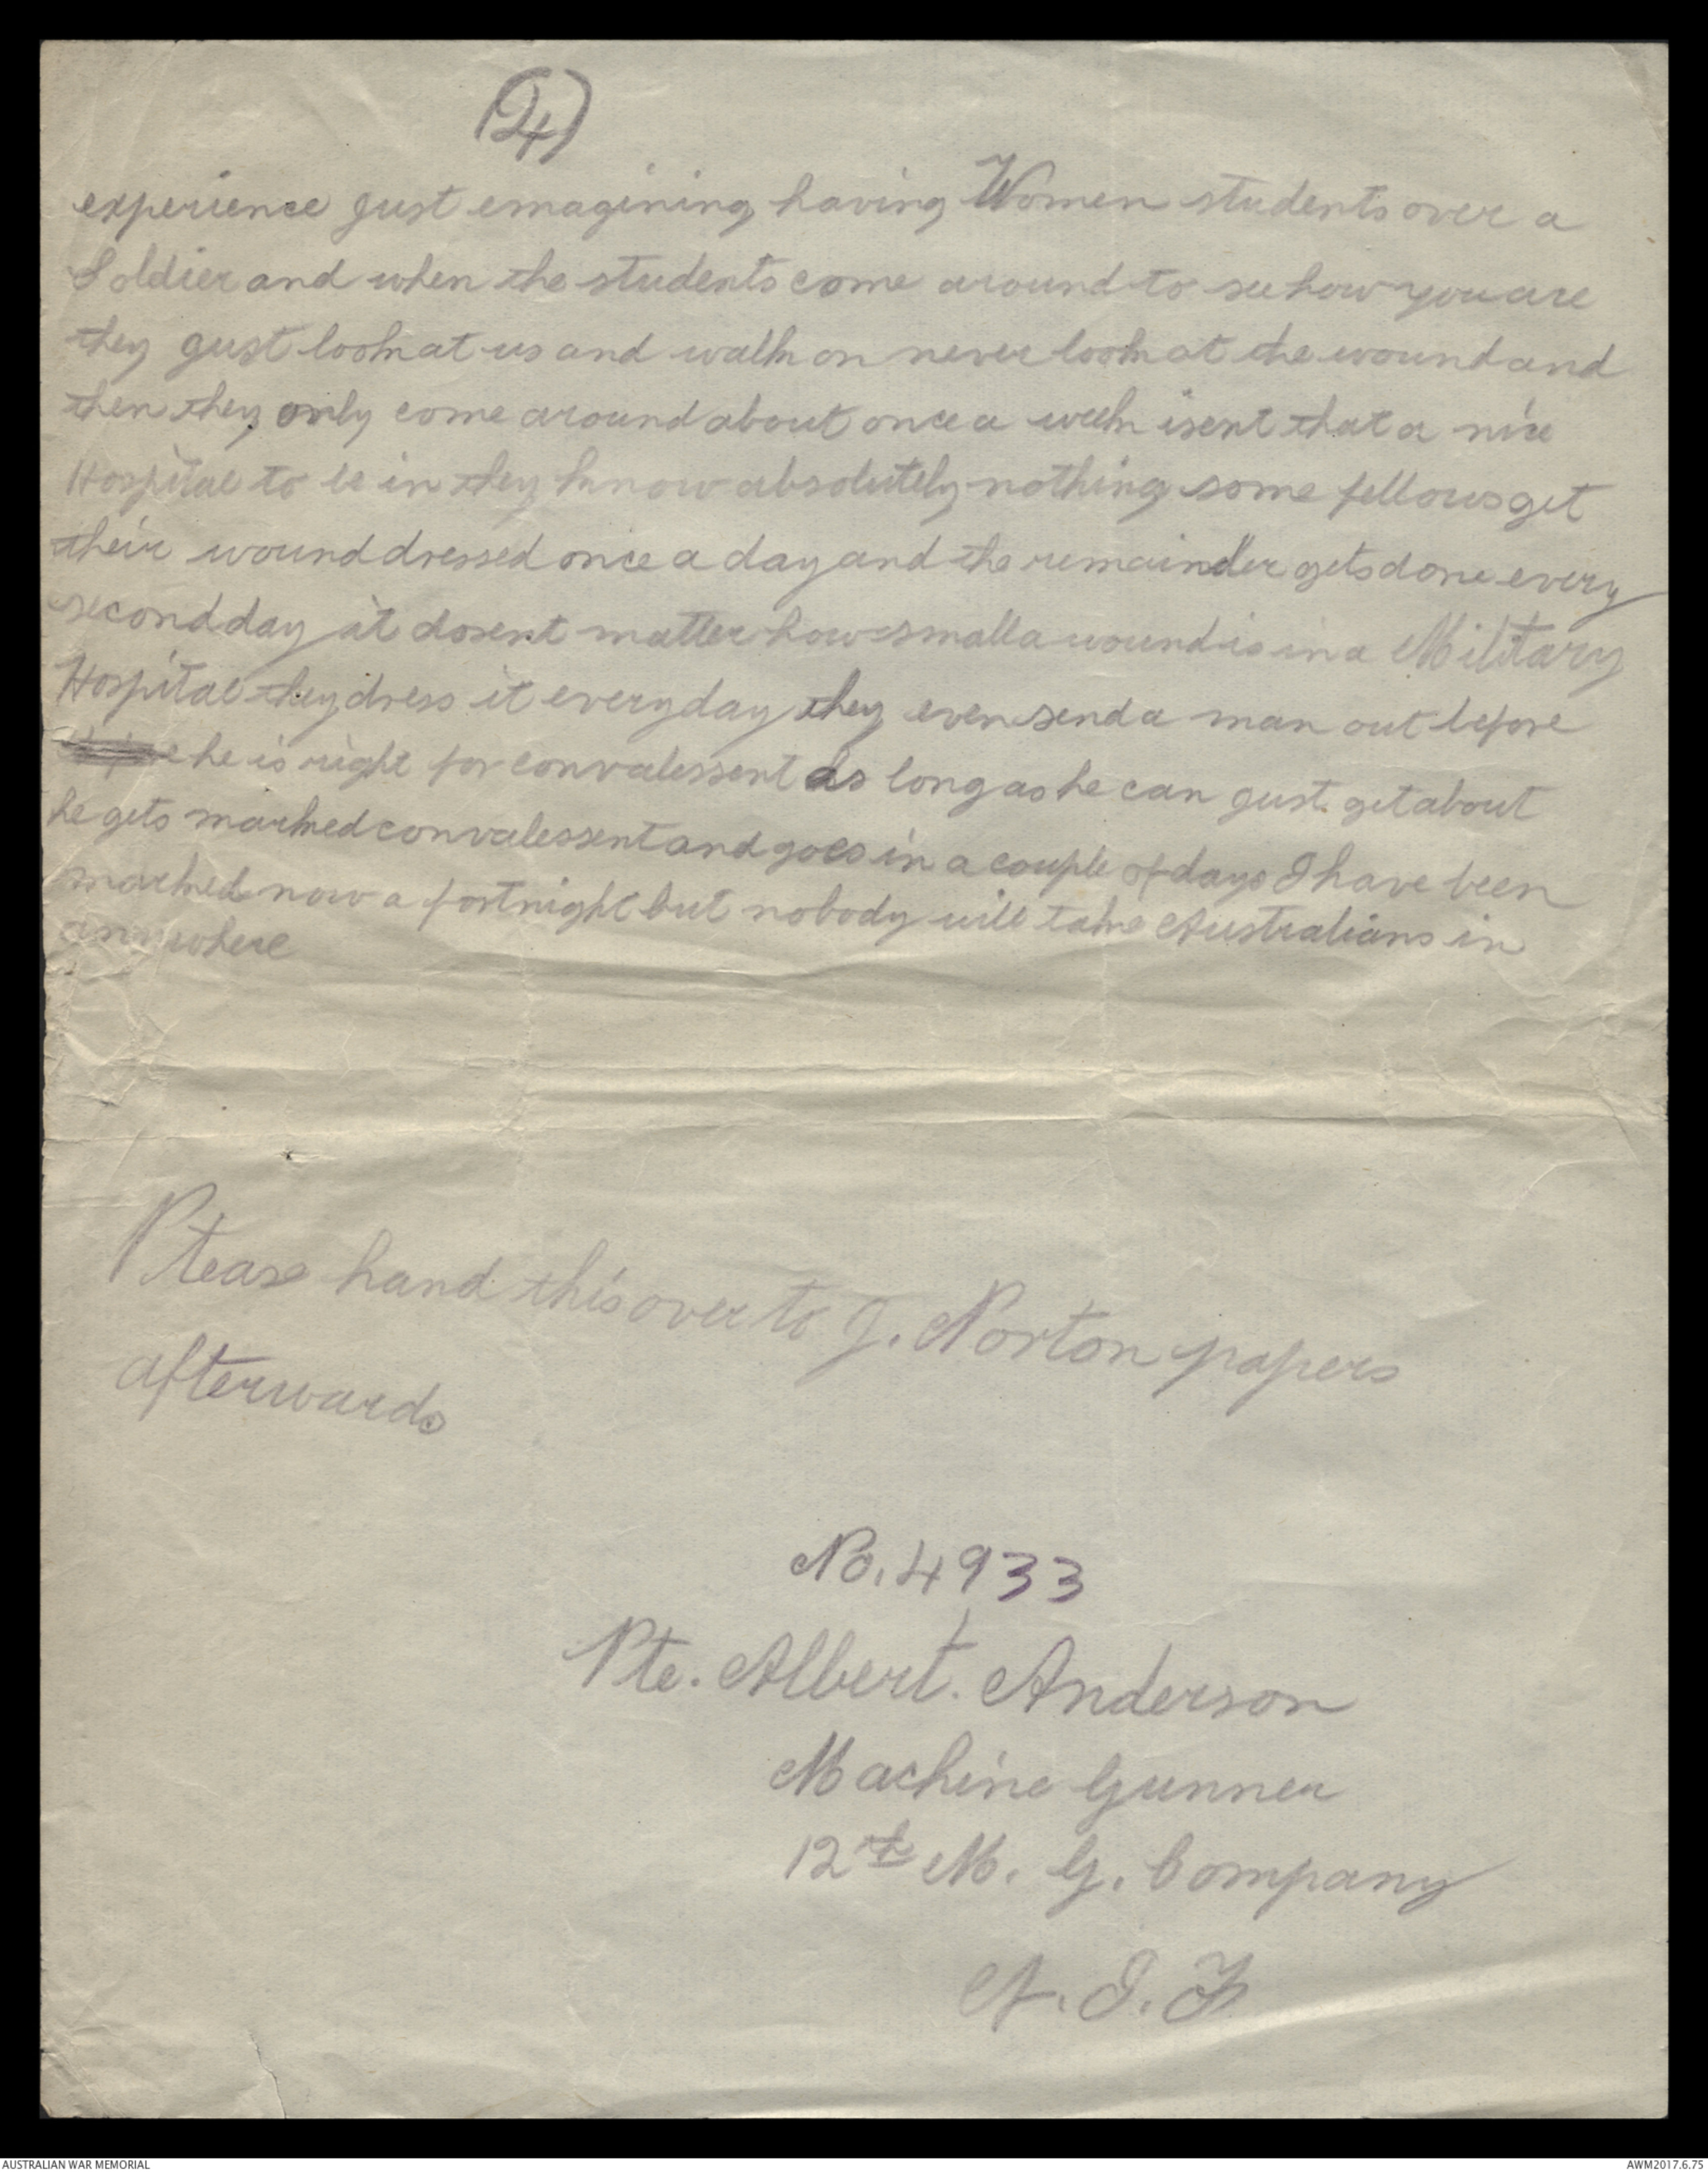 (24)
experience gust emagining having Women students over a
Soldier and when the students come around to see how you are
they gust look at us and walk on never look at the wound and
then they only come around about once a week isent that a nice
Hospital to be in they know absolutely nothing some fellows get
their wound dressed once a day and the remainder gets done every
second day it dosent matter how small a wound is in a Military
Hospital they dress it everyday they even send a man out before
he is right for convalessent as long as he can gust get about
he gets marked convalessent and goes in a couple of days I have been
marked now a fortnight but nobody will take Australians in
anywhere
Please hand this over to J. Norton papers
afterwards
No. 4933
Pte. Albert. Anderson
Machine Gunner
12th M. G. Company
A. I. F
AUSTRALIAN WAR MEMORIAL
AWM2017.6.75